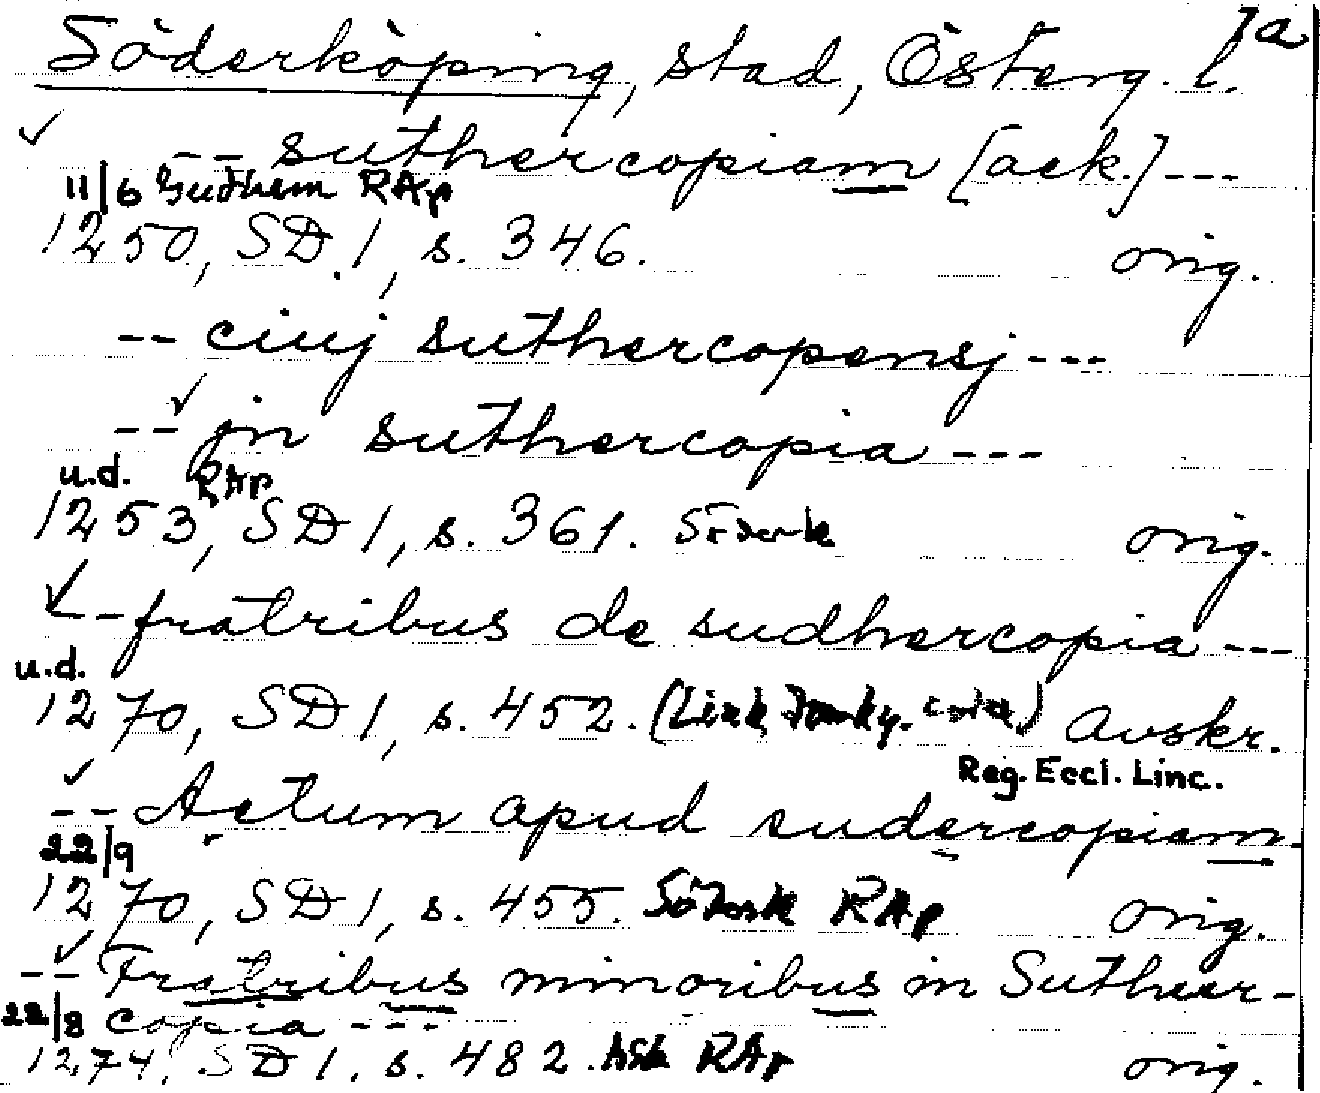 1a
Söderköping, stad, Österg. l.
-- suthercopiam [ack.] ---
11/6 Gudhem RAp
1250, SD 1, s. 346. orig.
-- ciuj suthercopensj ---
-- jn suthercopia ---
u.d. RAp
1253, SD 1, s. 361. Söderk orig.
-- fratribus de sudhercopia ---
u.d.
1270, SD 1, s. 452. (Link Avskr.
Reg. Eccl. Linc.
-- Actum apud sudercopiam.
22/9
1270, SD 1, s. 455. Söderk RAp orig.
-- Fratribus minoribus in Suthær-
22/8 copia ---
1274, SD 1, s. 482. RAp orig.